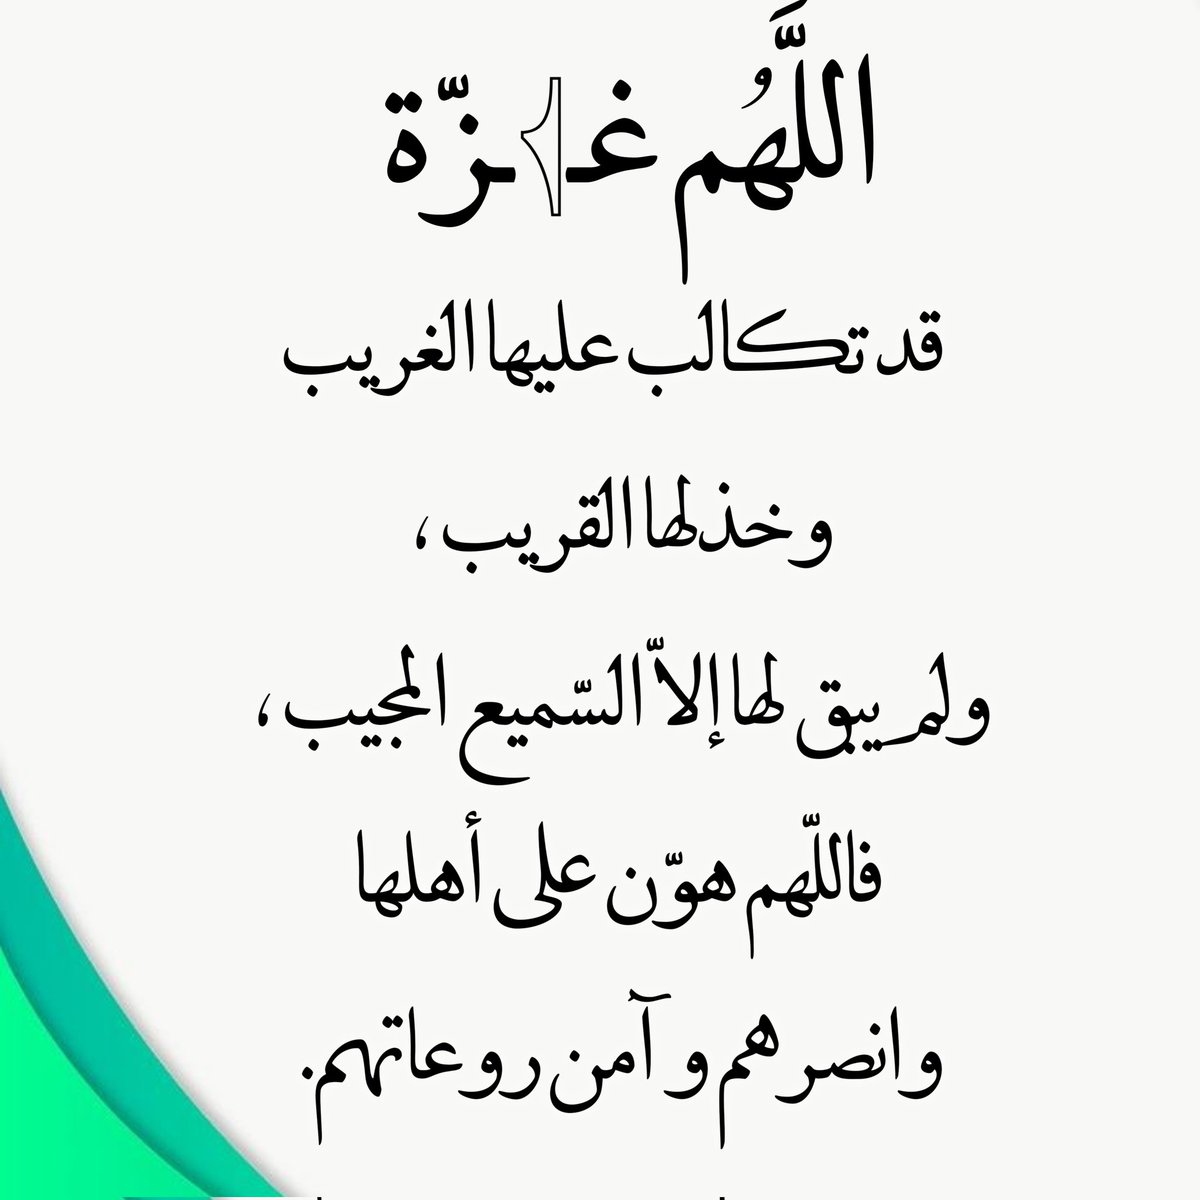 اللَّهُم غـ﴾ـزّة
قد تكالب عليها الغريب
وخذلها القريب ،
ولم يبق لها إلاّ السّميع المجيب ،
فاللّهم هوّن على أهلها
وانصرهم وآمن روعاتهم.